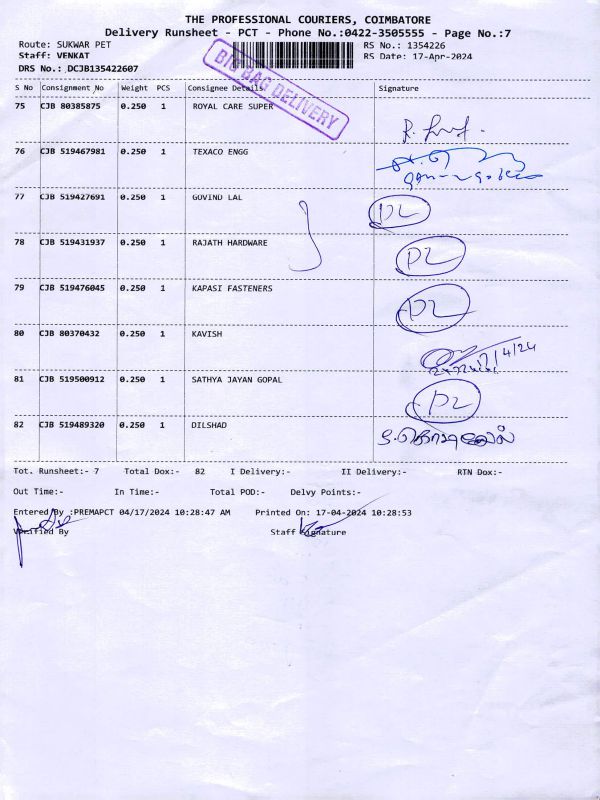 THE PROFESSIONAL COURIERS, COIMBATORE
Delivery Runsheet - PCT - Phone No.:0422-3505555 - Page No.:7
Route: SUKWAR PET RS No.: 1354226
Staff: VENKAT RS Date: 17-Apr-2024
DRS No.: DCJB135422607
BIG BAG DELIVERY
S No Consignment No Weight PCS Consignee Details Signature
75 CJB 80385875 0.250 1 ROYAL CARE SUPER
76 CJB 519467981 0.250 1 TEXACO ENGG
77 CJB 519427691 0.250 1 GOVIND LAL DL
78 CJB 519431937 0.250 1 RAJATH HARDWARE DL
79 CJB 519476045 0.250 1 KAPASI FASTENERS DL
80 CJB 80370432 0.250 1 KAVISH
81 CJB 519500912 0.250 1 SATHYA JAYAN GOPAL DL
82 CJB 519489320 0.250 1 DILSHAD
Tot. Runsheet:- 7 Total Dox:- 82 I Delivery:- II Delivery:- RTN Dox:-
Out Time:- In Time:- Total POD:- Delvy Points:-
Entered By :PREMAPCT 04/17/2024 10:28:47 AM Printed On: 17-04-2024 10:28:53
Verified By Staff Signature